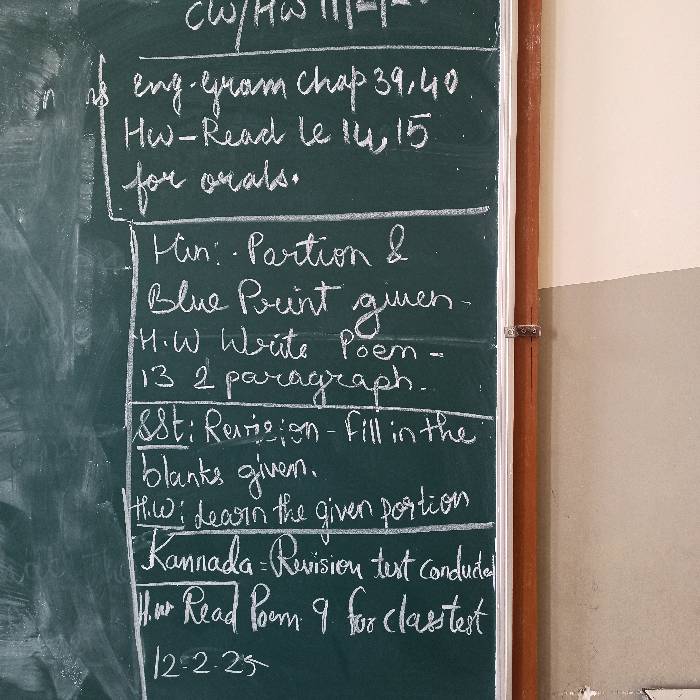 CW/HW 11/2/25
eng-gram chap 39,40
HW-Read le 14,15
for orals.
Hin:- Partion &
Blue Print given-
H.W Write Poem-
13 2 paragraph.
SSt: Revision - Fill in the
blanks given.
H.W: Learn the given portion
Kannada = Revision test conducted
H.w Read Poem 9 for class test
12-2-25